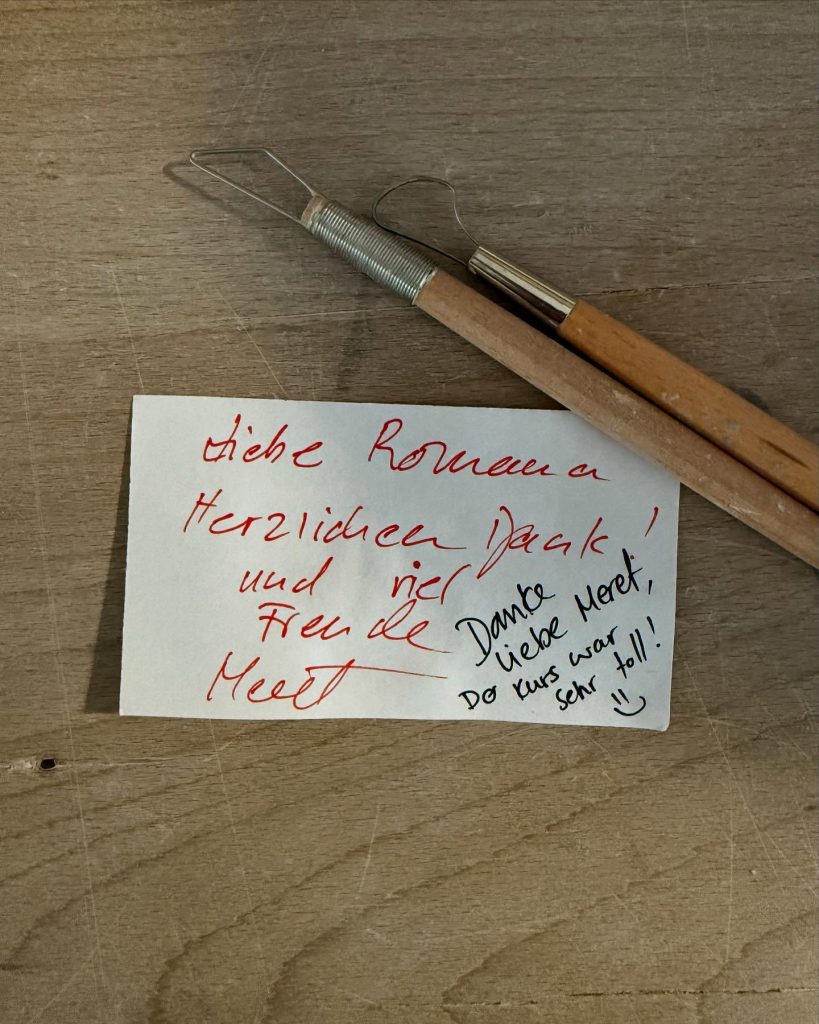 Liebe Romana
Herzlichen Dank!
und viel
Freude
Meret
Danke
liebe Meret,
Der Kurs war
sehr toll!